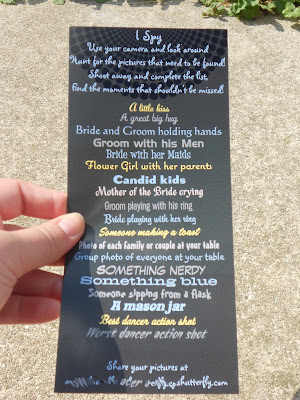 I Spy
Use your camera and look around
Hunt for the pictures that need to be found!
Shoot away and complete the list,
Find the moments that shouldn't be missed!
A little kiss
A great big hug
Bride and Groom holding hands
Groom with his Men
Bride with her Maids
Flower Girl with her parents
Candid kids
Mother of the Bride crying
Groom playing with his ring
Bride playing with her ring
Someone making a toast
Photo of each family or couple at your table
Group photo of everyone at your table
SOMETHING NERDY
Something blue
Someone sipping from a flask
A mason jar
Best dancer action shot
Worst dancer action shot
Share your pictures at
shutterfly.com